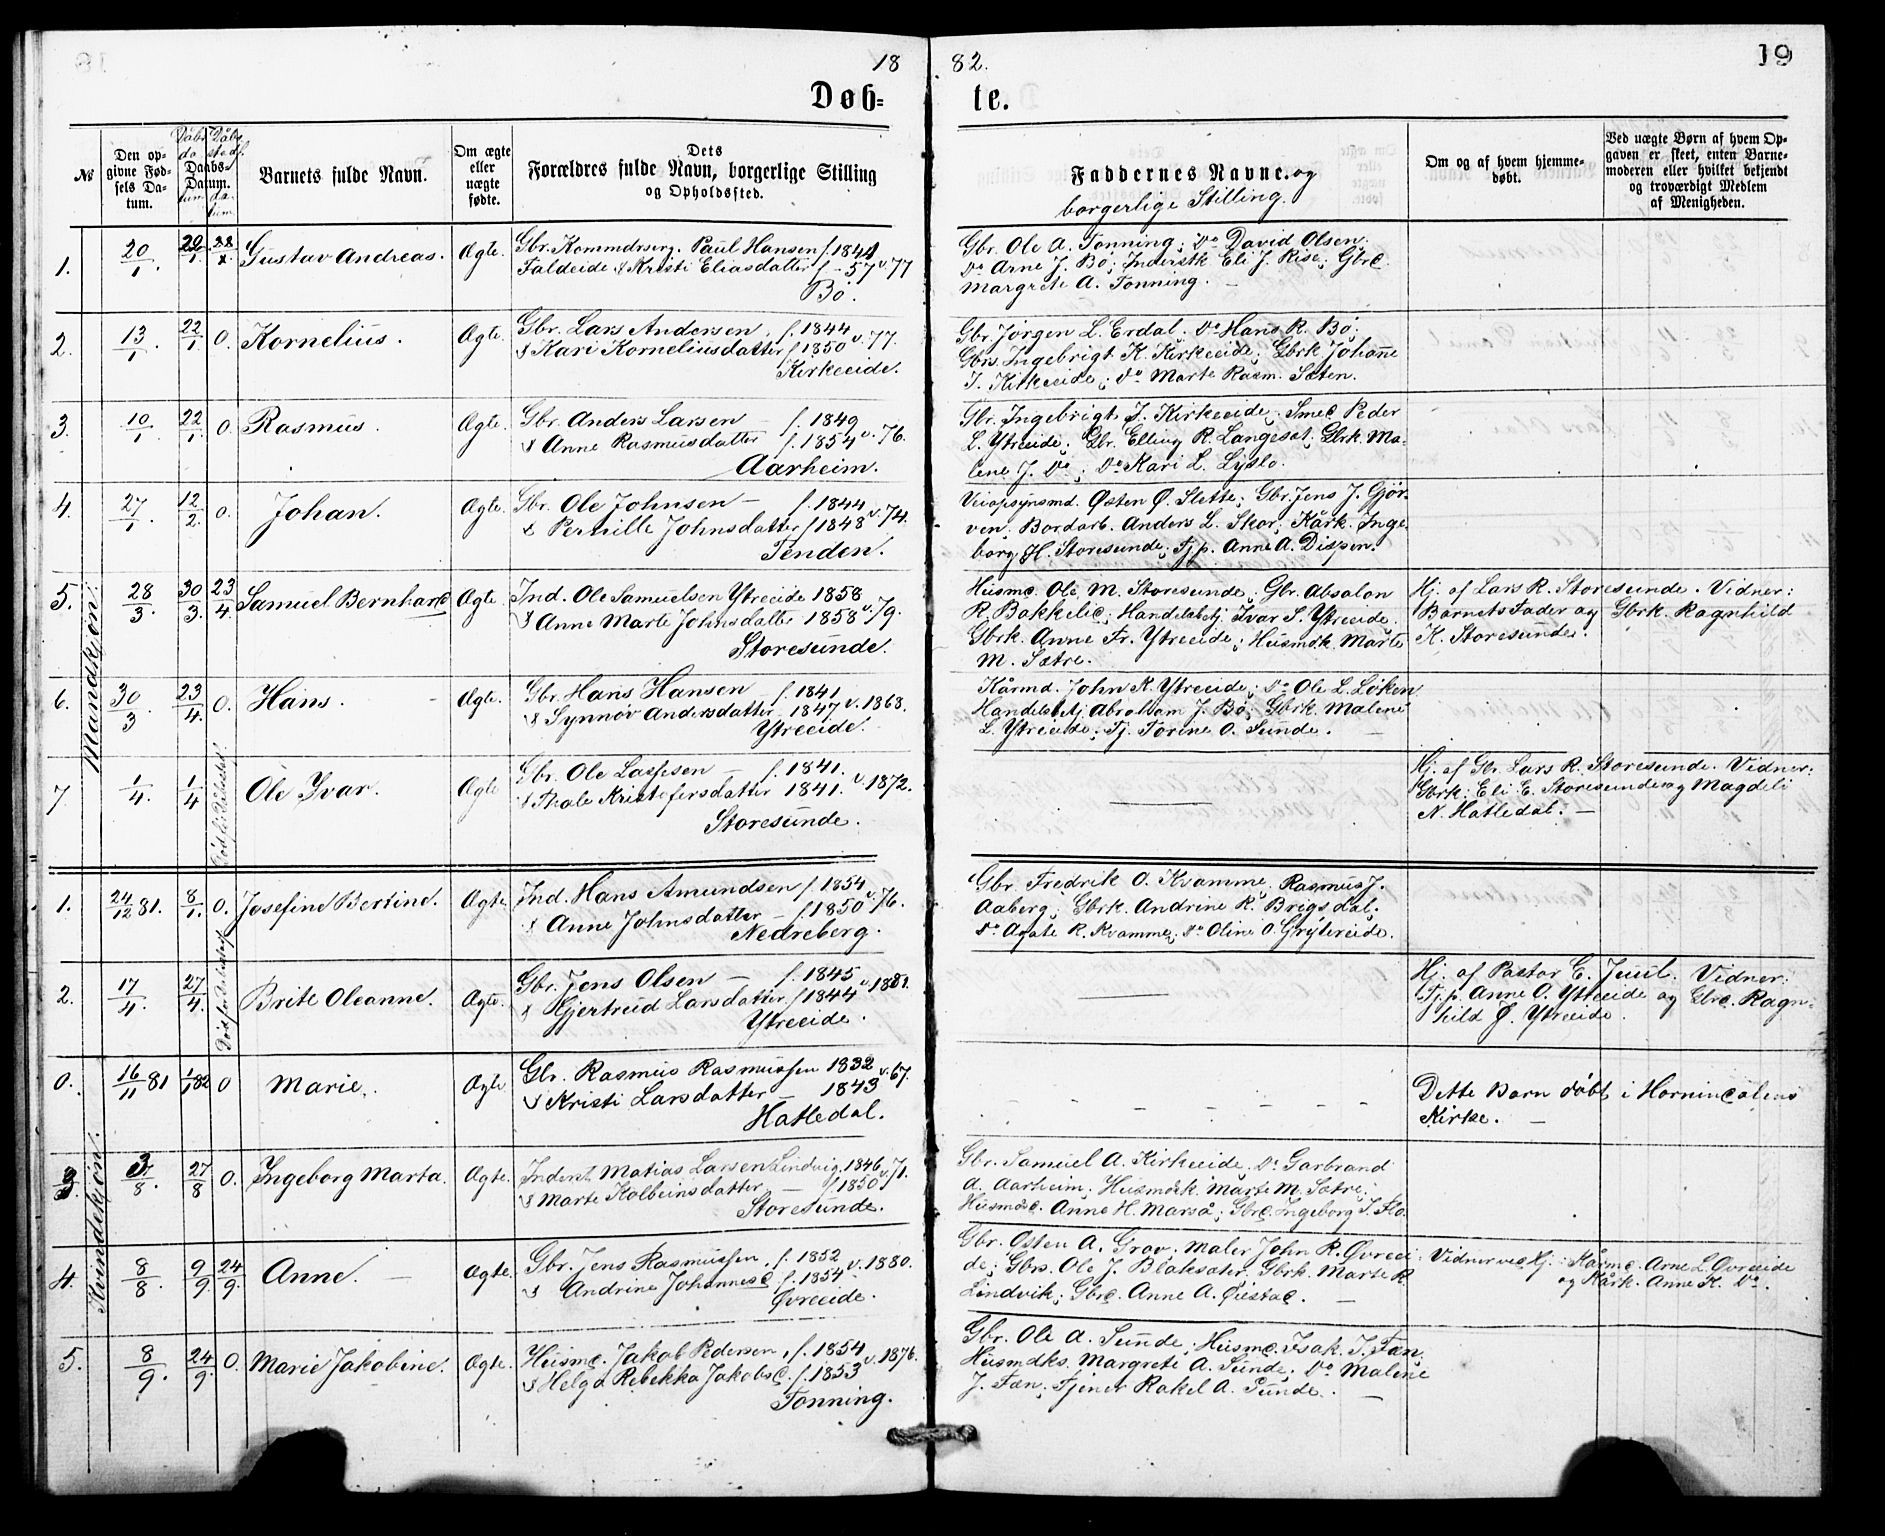 18 82. 19
Døb= te.
№
Den op-
givne Fød-
sels Da-
tum.
Daabs-
Datum.
Barnets fulde Navn.
Om ægte
eller
uægte
fødte.
Dets
Forældres fulde Navn, borgerlige Stilling
og Opholdssted.
Faddernes Navne. og
borgerlige Stilling.
Om og af hvem hjemme-
døbt.
Ved uægte Børn af hvem Op-
gaven er skeet, enten Barne-
moderen eller hvilket bekjendt
og troværdigt Medlem
af Menigheden.
Mandkjøn.
1. 20/1. Gustav Andreas. Ægte. Gbr. Paul Hansen f. 1844
Faldeide & Kristi Eliasdatter f - 57 v. 77
Bö.
Gbr. Ole A. Tonning; Do David Olsen;
Do Arne J. Bö; Inderstk Eli J. Rise; Gbrd.
Margrete A. Tonning.
2. 13/1. 22/1. 0. Kornelius. Ægte. Gbr. Lars Andersen, f. 1844
& Kari Korneliusdatter f 1850 v. 77.
Kirkeeide.
Gbr. Jørgen L. Erdal. Do Hans R. Bö;
Gbrs. Ingebrigt K. Kirkeeide; Gbrk Johanne
J. Kirkeeide; Do Marte Rasm. Sæten.
3. 10/1. 22/1. 0. Rasmus. Ægte. Gbr. Anders Larsen f. 1849
& Anne Rasmusdatter f. 1854 v. 76.
Aarheim.
Gbr. Ingebrigt J. Kirkeeide; Smed Peder
L. Ytreeide; Gbr. Elling R. Langesæt; Gbrk. Ma-
lene J. Do; Do Kari L. Lyslo.
4. 27/1. 12/2. 0. Johan. Ægte. Gbr. Ole Johnsen - f. 1844
& Pernille Johnsdatter f 1848 v. 74.
Tenden.
Veiopsynsmd. Østen Ø. Slette; Gbr. Jens J. Gjör-
ven; Bordarb. Anders L. Skor; Kårk. Inge-
borg H. Storesunde; Tj. p. Anne A. Dispen.
5. 28/3. 30/3. 23/4. Samuel Bernhard Ægte. Ind. Ole Samuelsen Ytreeide 1858
& Anne Marte Johnsdatter 1858 v. 79.
Storesunde.
Husmd. Ole M. Storesunde; Gbr. Absalon
R. Bakkelid; Handelsbetj. Ivar S. Ytreeide.
Gbrk. Anne Fr. Ytreeide; Husmdk. Marte
M. Sætre.
Hj. af Lars R. Storesunde. Vidner:
Barnets Fader og Gbrk. Ragnhild
K. Storesunde.
6. 30/3 23/4. 0. Hans. Ægte. Gbr. Hans Hansen f. 1841
& Synnöv Andersdatter - 1847 v. 1868.
Ytreeide.
Kårmd. John K. Ytreeide; Do Ole L. Löken
Handelsbtj Abraham J. Bö; Gbrk. Malene
L. Ytreeide; Tj. Torine O. Sunde.
7 1/4. 1/4 Ole Ivar. Ægte Gbr. Ole Lassesen - f. 1841.
& Thale Kristofersdatter 1841. v. 1872.
Storesunde.
Hj. af Gbr. Lars R. Storesunde. Vidner:
Gbrk. Eli E. Storesunde og Magdeli
N. Hatledal. -
Kvindekjøn.
1. 24/12 81. 8/1. 0. Josefine Bertine. Ægte. Ind. Hans Amundsen f. 1854
& Anne Johnsdatter - f. 1850 v. 76.
Nedreberg.
Gbr. Fredrik O. Kvamme. Rasmus J.
Aaberg; Gbrk. Andrine R. Brigsdal;
Do Agate R. Kvamme; Do Oline O. Grytereide.
2. 17/4. 27/4. Brite Oleanne. Ægte. Gbr. Jens Olsen - f. 1845
& Gjertrud Larsdatter f 1844 v. 1881.
Ytreeide.
Hj. af Pastor E. Juul. Vidner:
Tj. p. Anne O. Ytreeide og Gbrd. Ragn-
hild Ø. Ytreeide.
0. 16/11 81 1/1 82 0 Marie. Ægte Gbr. Rasmus Rasmussen 1832
& Kristi Larsdatter - 1843 v. 67.
Hatledal.
Dette Barn døbt i Hornindalens
Kirke. -
3. 3/8. 27/8 0. Ingeborg Marta. Ægte. Inderst Matias Larsen Lindvig 1846
& Marte Kolbeinsdatter - f 1850 v. 71.
Storesunde.
Gbr. Samuel A. Kirkeeide. Do Garbrand
A. Aarheim; Husmdk. Marte M. Sætre;
Husmdd. Anne H. Marså; Gbrd. Ingeborg J. Flo.
4. 8/8. 9/9. 24/9. Anne. Ægte. Gbr. Jens Rasmussen, f. 1852
& Andrine Johannesd f. 1854 v. 1880.
Øvreeide.
Gbr. Østen A. Grov; Maler John R. Øvreei-
de; Gbrs. Ole J. Blaksæter; Gbrk. Marte R.
Lindvik; Gbrd. Anne A. Øiestad.
Vidner ved Hj.: Kårmd. Arne L Øvreeide
og Kårk. Anne K. Do.
5. 8/9. 24/9. 0. Marie Jakobine. Ægte. Husmd. Jakob Pedersen, f. 1854
& Helga Rebekka Jakobsd. f. 1853 v. 1876.
Tonning.
Gbr. Ole A. Sunde; Husmd. Isak J. Fæn;
Husmdks. Margrete A. Sunde; Do Malene
J. Fæn; Tjener Rakel A. Sunde.